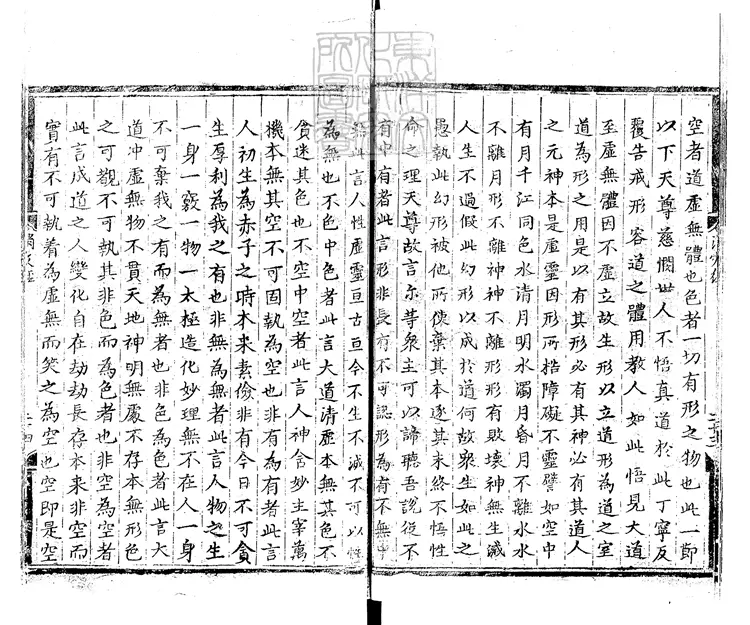 空者道虛無體也色者一切有形之物也此一節
以下天尊慈憫世人不悟真道於此丁寧反
覆告戒形容道之體用教人如此悟見大道
至虛無體因不虛立故生形以立道形為道之室
道為形之用是以有其形必有其神必有其道人
之元神本是虛靈因形所梏障礙不靈譬如空中
有月千江同色水清月明水濁月昏月不離水水
不離月形不離神神不離形形有敗壞神無生滅
人生不過假此幻形以成於道何故眾生如此之
愚執此幻形被他所使棄其本逐其末終不悟性
命之理天尊故言尓等衆生可以諦聽吾說從不
有中有者此言形非長有不可認形為有不無中
無此言人性虛靈亘古亘今不生不滅不可以性
為無也不色中色者此言大道清虛本無其色不
貪迷其色也不空中空者此言人神舍妙主宰萬
機本無其空不可固執為空也非有為有者此言
人初生為赤子之時本來素儉非有今日不可貪
生厚利為我之有也非無為無者此言人物之生
一身一竅一物一太極造化妙理無不在人一身
不可棄我之有而為無者也非色為色者此言大
道冲虛無物不貫天地神明無處不存本無形色
之可觀不可執其非色而為色者也非空為空者
此言成道之人變化自在劫劫長存本來非空而
實有不可執着為虛無而笑之為空也空即是空